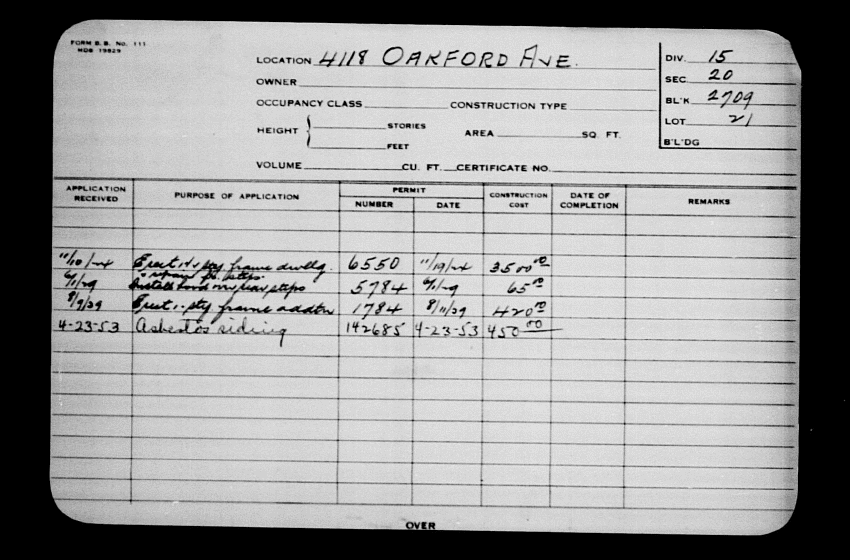 FORM B. B. No. 111
MOB 19829
LOCATION 4118 OAKFORD AVE.
DIV. 15
OWNER
SEC. 20
OCCUPANCY CLASS CONSTRUCTION TYPE
BL'K 2709
HEIGHT { STORIES AREA SQ. FT.
LOT 21
FEET
B'L'DG
VOLUME CU. FT. CERTIFICATE NO.
APPLICATION RECEIVED PURPOSE OF APPLICATION PERMIT NUMBER DATE CONSTRUCTION COST DATE OF COMPLETION REMARKS
11/10/24 Erect sty frame dwellg. 6550 11/19/24 3500.00
repair steps
6/1/29 Install hood over rear steps 5784 6/1/29 65.00
8/9/29 Erect 1-sty frame addtn 1784 8/11/29 420.00
4-23-53 Asbestos siding 142685 4-23-53 450.00
OVER